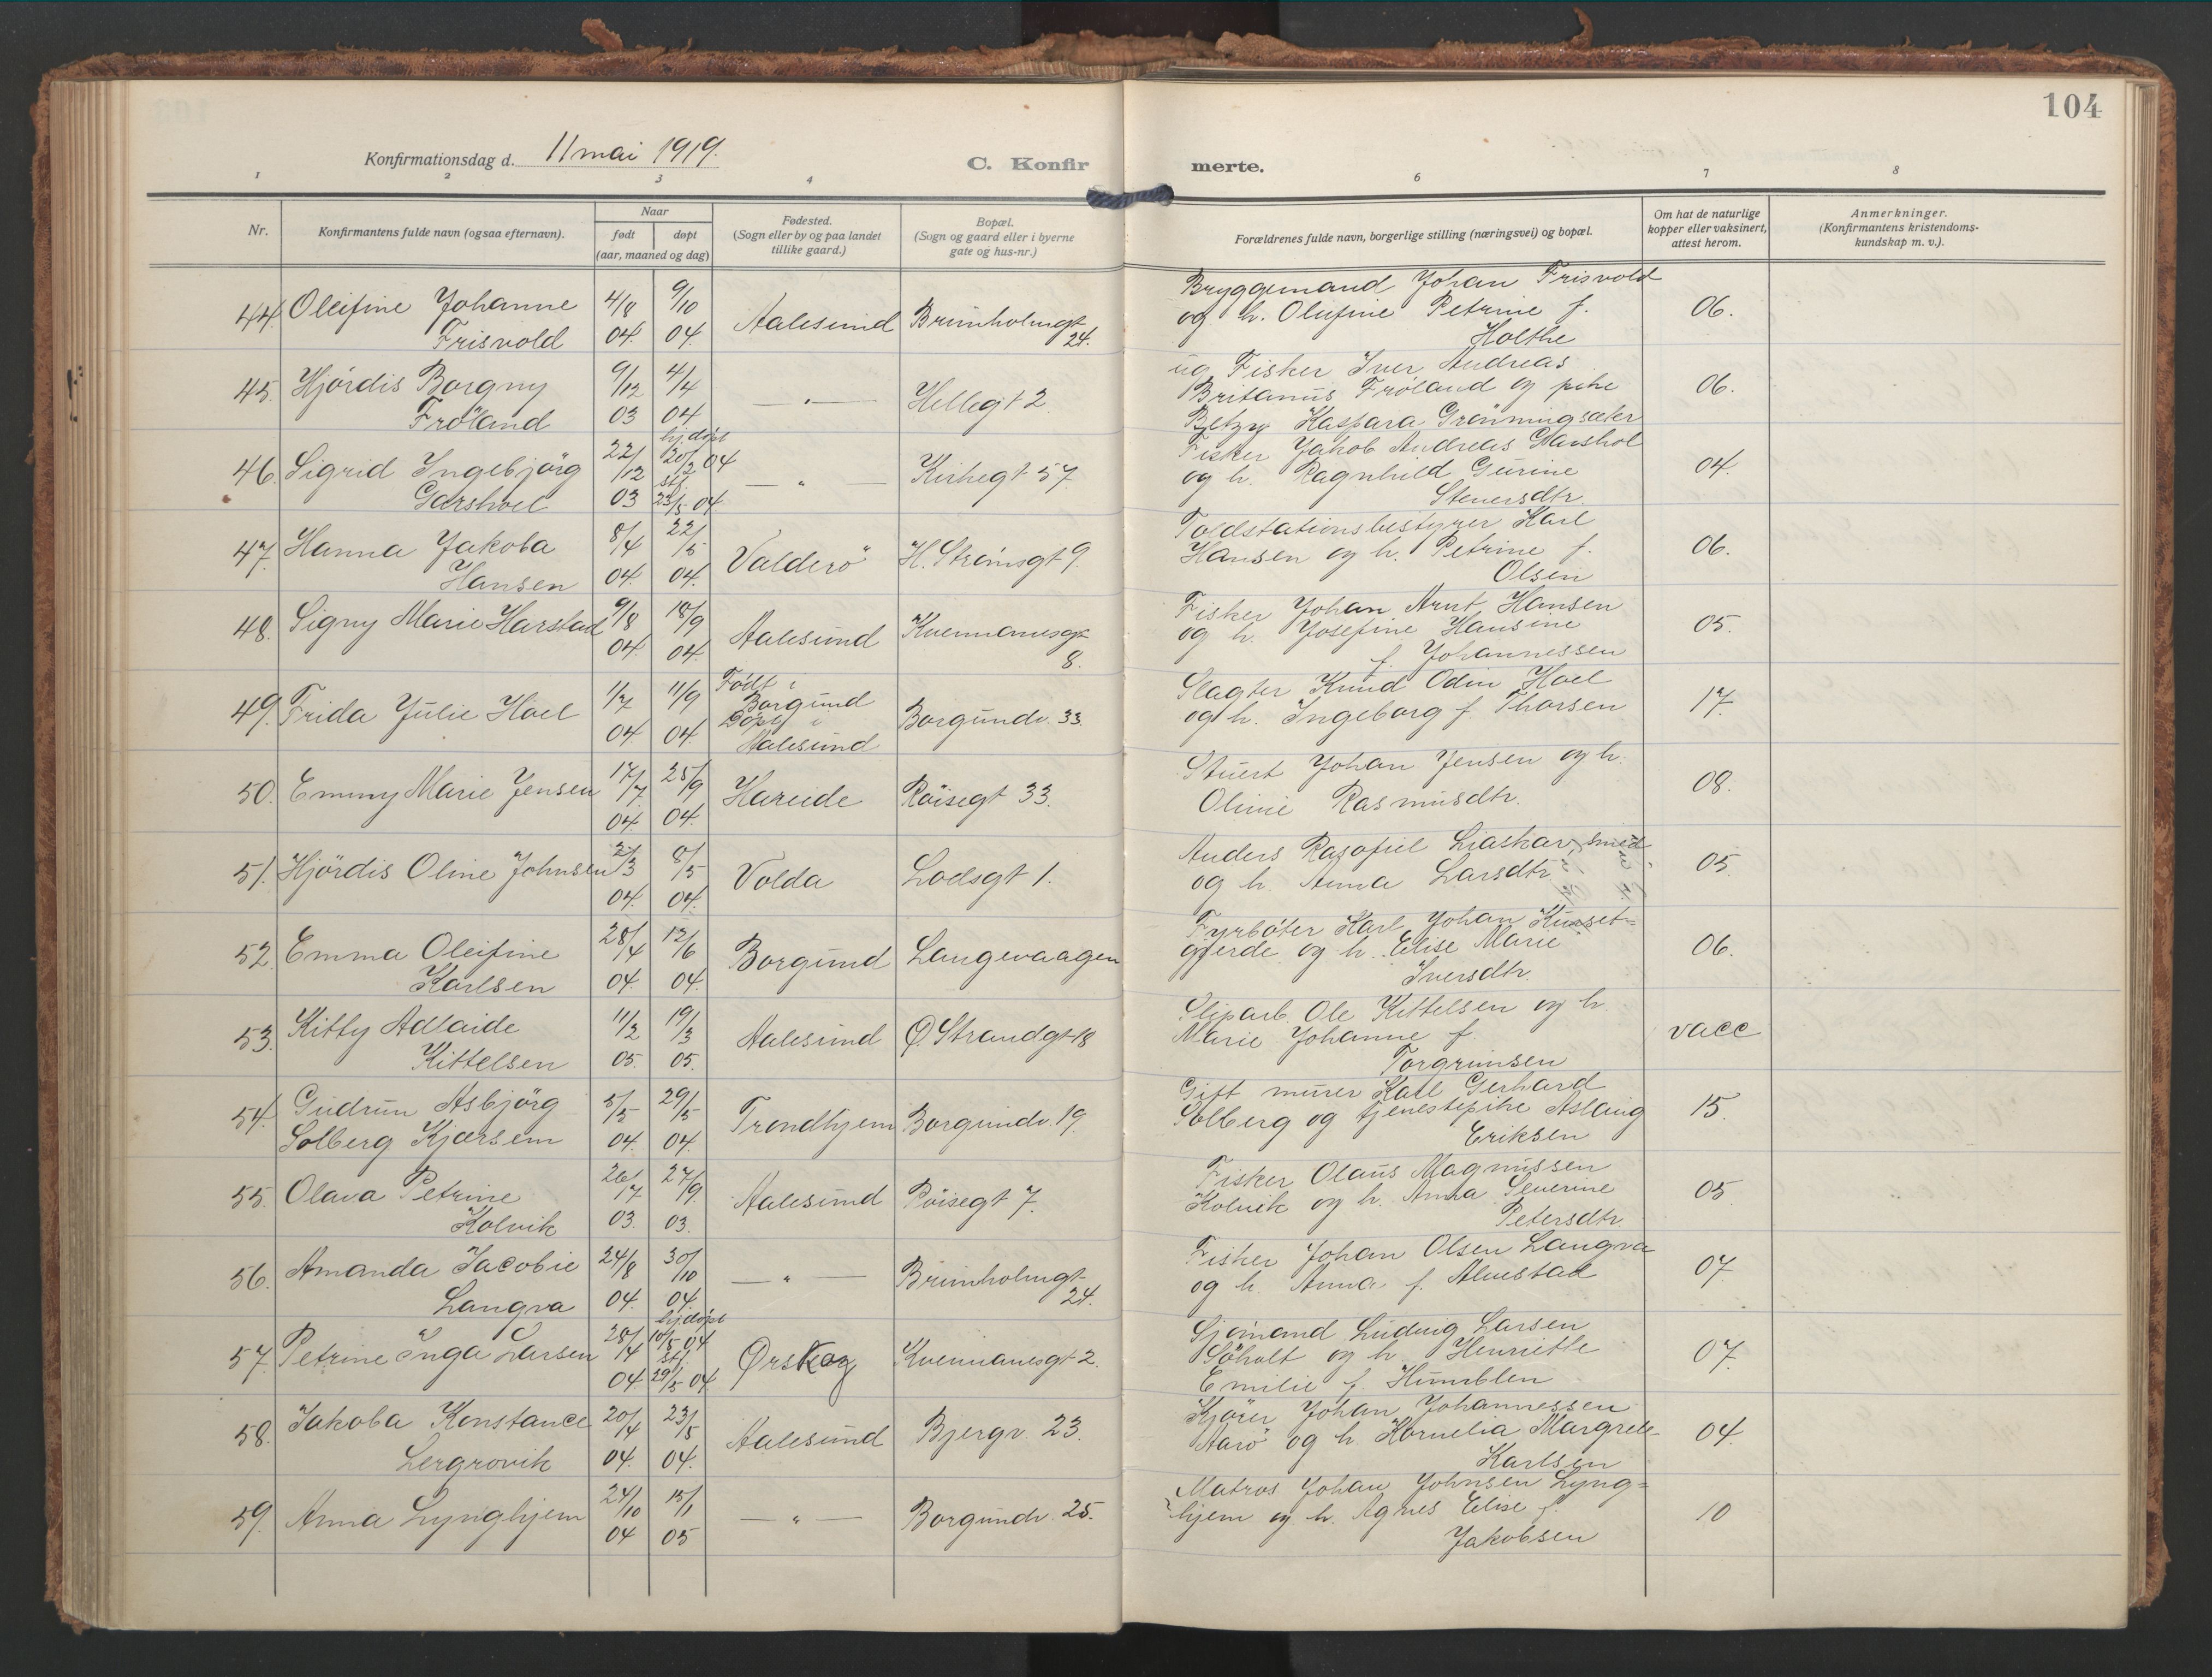 104
Konfirmationsdag d. 11 mai 1919.
C. Konfirmerte.
1 2 3 4 6 7 8
Nr.
Konfirmantens fulde navn (ogsaa efternavn).
Naar
født
døpt
(aar, maaned og dag)
Fødested.
(Sogn eller by og paa landet
tillike gaard.)
Bopæl.
(Sogn og gaard eller i byerne
gate og hus-nr.)
Forældrenes fulde navn, borgerlige stilling (næringsvei) og bopæl.
Om hat de naturlige
kopper eller vaksinert,
attest herom.
Anmerkninger.
(Konfirmantens kristendoms-
kundskap m. v.).
44. Oleifine Johanne
Frisvold
4/8 04. 9/10 04.
Aalesund
Brunholmgt. 24.
Bryggemand Johan Frisvold
og h. Olufine Petrine f.
Holthe
06.
45. Hjördis Borgny
Fröland
9/12 03 4/4 04
— " —
Hellegt 2.
ug Fisker Iver Andreas
Britanus Fröland og pike
Betzy Kaspara Grönningsæter
06.
46. Sigrid Ingebjörg
Garshoel
22/12 03 hj. döpt 20/12 04 stf. 23/5 04
— " —
Kirkegt 57
Fisker Jakob Andreas Garshol
og h. Ragnhild Gurine
Steversdtr.
04.
47. Hanna Jakoba
Hansen
8/4 04. 22/5 04.
Valderö
H. Strömsgt 9.
Toldstationsbestyrer Karl
Hansen og h. Petrine f.
Olsen
06.
48. Signy Marie Harstad
9/8 04. 18/9 04.
Aalesund
Kvennanesgt 8.
Fisker Johan Arnt Hansen
og h. Josefine Hansine
f. Johannessen
05.
49. Frida Julie Hoel
1/7 04. 11/9 04.
Födt i
Borgund
Döpt i
Aalesund
Borgundv. 33.
Slagter Knud Odin Hoel
og h. Ingeborg f. Thorsen
17.
50. Emmy Marie Jensen
17/7 04. 25/9 04.
Hareide
Röisegt 33.
Stuert Johan Jensen og h.
Oline Rasmusdtr.
08.
51. Hjördis Oline Johnsen
2/3 04. 8/5 04.
Volda
Lodsgt 1.
Anders Rasofiel Liaskar, smed
og h. Anna Larsdtr
05.
52. Emma Oleifine
Karlsen
28/4 04. 12/6 04.
Borgund
Langevaagen
Fyrböter Karl Johan Kurset-
gjerde og h. Elise Marie
Iversdtr.
06.
53. Kitty Adlaide
Kittelsen
11/2 05. 19/3 05.
Aalesund
Ø. Strandgt 18
Sliparb. Ole Kittelsen og h.
Marie Johanne f.
Torgrimsen
vacc
54. Gudrun Asbjörg
Solberg Kjærsem
5/5 04. 29/5 04.
Trondhjem
Borgundv. 19
Gift murer Karl Gerhard
Solberg og tjenestepike Aslaug
Eriksen
15.
55. Olava Petrine
Kolvik
26/7 03. 27/9. 03.
Aalesund
Röisegt 7.
Fisker Olaus Magnussen
Kolvik og h. Anna Severine
Petersdtr.
05
56. Amanda Jacobie
Langva
24/8 04. 30/10 04.
— " —
Brunholmgt. 24.
Fisker Johan Olsen Langva
og h. Anna f. Alnestad
07.
57. Petrine Inga Larsen
28/4 04 hj. döpt 10/5 04 stf. 29/5 04
Ørskog
Kvennanesgt 2.
Sjömand Ludvig Larsen
Söholt og h. Henriette
Emilie f. Humblen
07.
58. Jakoba Konstance
Lergrovik
20/4 04. 23/5 04.
Aalesund
Bjergv. 23.
Kjörer Johan Johannessen
Aarö og h. Kornelia Margrete
Karlsen
04.
59. Anna Lynghjem
24/10 04 15/1 05
— " —
Borgundv. 25.
Matros Johan Johnsen Lyng-
hjem og h. Agnes Elise f.
Jakobsen
10